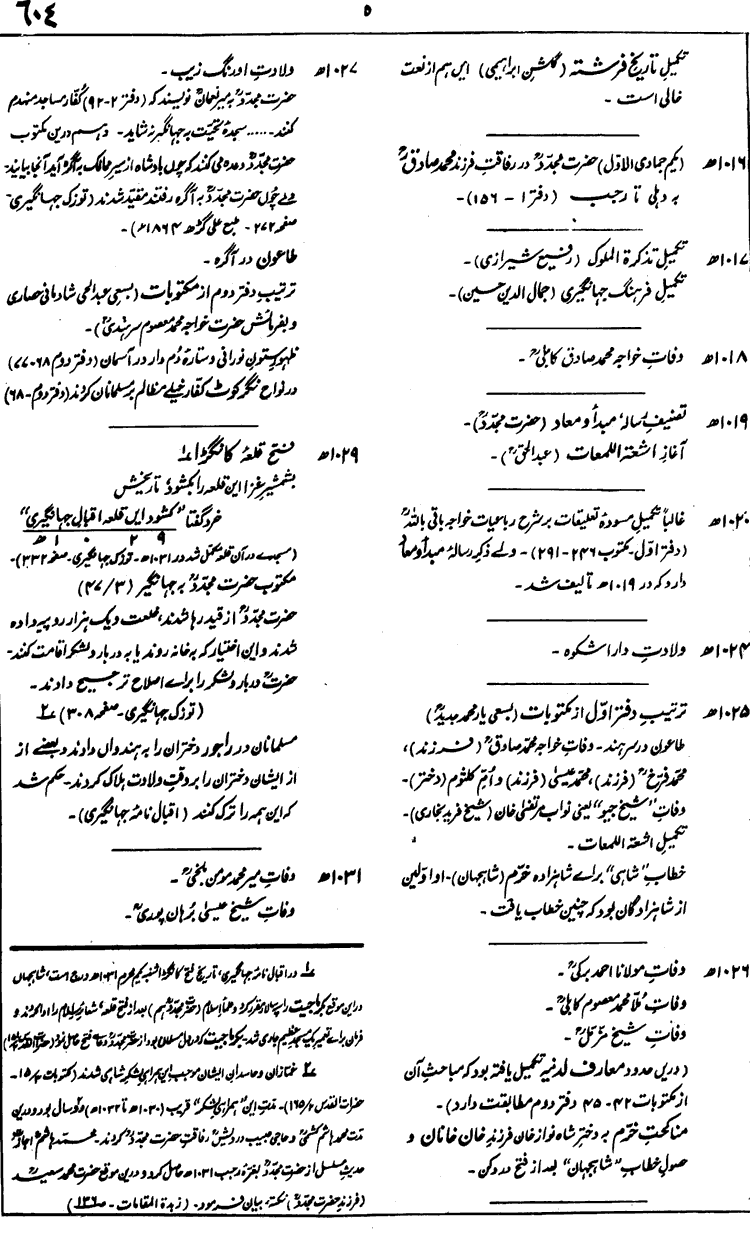 ۶۰۴
۵
تکمیلِ تاریخِ فرشتہ (گلشنِ ابراہیمی) ایں ہم از نعت
خالی است ۔
۱۰۱۶ھ (یکم جمادی الاوّل) حضرت مجدّدؒ در رفاقتِ فرزند محمد صادقؒ
بہ دہلی تا رجب (دفتر ۱ ۔ ۱۵۶)۔
۱۰۱۷ھ تکمیلِ تذکرۃ الملوک (رفیع شیرازی)۔
تکمیلِ فرہنگِ جہانگیری (جمال الدین حسین)۔
۱۰۱۸ھ وفاتِ خواجہ محمد صادق کابلیؒ ۔
۱۰۱۹ھ تصنیفِ رسالۂ مبدأ و معاد (حضرت مجدّدؒ)۔
آغازِ اشعۃ اللمعات (عبدالحقؒ)۔
۱۰۲۰ھ غالباً تکمیلِ مسودۂ تعلیقات بر شرح رباعیات خواجہ باقی باللہؒ
(دفتر اوّل۔ مکتوب ۲۴۶ - ۲۹۱)۔ ولے ذکرِ رسالۂ مبدأ و معاد
دارد کہ در ۱۰۱۹ھ تالیف شد ۔
۱۰۲۴ھ ولادتِ داراشکوہ ۔
۱۰۲۵ھ ترتیبِ دفتر اوّل از مکتوبات (بسعی یار محمد جدیدؒ)
طاعون در سرہند۔ وفاتِ خواجہ محمد صادقؒ (فرزند)،
محمد فرخؒ (فرزند)، محمد عیسیٰ (فرزند) و اُمِّ کلثوم (دختر)۔
وفاتِ "شیخ جیو" یعنی نواب مرتضیٰ خان (شیخ فرید بخاری)۔
تکمیلِ اشعۃ اللمعات ۔
خطابِ "شاہی" برائے شاہزادہ خرّم (شاہجہان)۔ او اوّلین
از شاہزادگان بود کہ چنین خطاب یافت ۔
۱۰۲۶ھ وفاتِ مولانا احمد برکیؒ ۔
وفاتِ مُلّا محمد معصوم کابلیؒ ۔
وفاتِ شیخ مزمّلؒ ۔
(دریں حدود معارف لدنیہ تکمیل یافتہ بود کہ مباحثِ آن
از مکتوبات ۴۲ - ۴۵ دفتر دوم مطابقت دارد)۔
مناکحتِ خرّم بہ دختر شاہ نواز خان فرزند خان خانان و
حصولِ خطابِ "شاہجہان" بعد از فتح دکن ۔
۱۰۲۷ھ ولادتِ اورنگ زیب ۔
حضرت مجدّدؒ بہ میر نعمانؒ نویسند کہ (دفتر ۲-۹۲) کُفّار مساجد منہدم
کنند ...... سجدۂ تحیّت بہ جہانگیر نہ شاید ۔ وہم درین مکتوب
حضرت مجدّدؒ وعدہ می کنند کہ چوں بادشاہ از سیرِ ممالک بہ آگرہ آید آنجا بیایند۔
ولے چُوں حضرت مجدّدؒ بہ آگرہ رفتند مقیّد شدند (توزک جہانگیری۔
صفحہ ۲۷۲ ۔ طبع علی گڑھ ۱۸۶۴ء)۔
طاعون در آگرہ ۔
ترتیبِ دفتر دوم از مکتوبات (بسعی عبدالحی شادمانی حصاری
و بفرمائش حضرت خواجہ محمد معصوم سرہندیؒ)۔
ظہورِ ستونِ نورانی و ستارۂ دُم دار در آسمان (دفتر دوم ۶۸-۷۷)
در نواحِ نگرکوٹ کفّار خیلے مظالم بر مسلمانان کردند (دفتر دوم-۶۸)
۱۰۲۹ھ فتحِ قلعۂ کانگڑا ؎۱
بشمشیرِ غزا این قلعہ را بکشود تاریخش
خرد گفتا "کشود ایں قلعہ اقبالِ جہانگیری"
۱ ۰ ۲ ۹ ھ
(مسجدے در آن قلعہ مکمل شد در ۱۰۳۱ھ۔ توزک جہانگیری۔ صفحہ ۲۳۲)۔
مکتوب حضرت مجدّدؒ بہ جہانگیر (۳/۴۷)
حضرت مجدّدؒ از قید رہا شدند، خلعت و یک ہزار روپیہ دادہ
شدند و این اختیار کہ بہ خانہ روند یا بہ دربار و لشکر اقامت کنند۔
حضرتؒ دربار و لشکر را برائے اصلاح ترجیح دادند ۔
(توزک جہانگیری۔ صفحہ ۳۰۸) ؎۲
مسلمانان در راجور دختران را بہ ہندواں دادند و بعضے از
از ایشان دختران را بروقتِ ولادت ہلاک کردند۔ حکم شد
کہ این ہمہ را ترک کنند (اقبال نامۂ جہانگیری)۔
۱۰۳۱ھ وفاتِ میر محمد مومن بلخیؒ ۔
وفاتِ شیخ عیسیٰ بُرہان پوریؒ ۔
؎۱ در اقبال نامۂ جہانگیری، تاریخِ فتحِ کانگڑا شنبہ یکم محرم ۱۰۳۱ھ درج است، شاہجہان
در این موقع بکرماجیت را سپہ سالار مقرر کرد و علماءِ اسلام بعد از فتحِ قلعہ، شعائرِ اسلام را
فرمان برائے تعمیر یک مسجد عظیم جاری شد۔ بکرماجیت کہ
؎۲ غمّازان و حاسدانِ ایشان موجب این ہمراہی لشکرِ شاہی شدند (مکتوبات ۔ ۱۵
حضرات القدس ۱۶۵/۲)۔ مدتِ این "ہمراہی لشکر" قریب (۱۰۳۰ھ تا ۱۰۳۲ھ) دو سال بود و درین
مدت محمد ہاشم کشمیؒ و حاجی حبیب در رفاقتِ حضرت مجدّدؒ کردند۔ محمد ہاشمؒ اجازتِ
حدیثِ مسلسل از حضرت مجدّدؒ بغرّۂ رجب ۱۰۳۱ھ حاصل کرد و درین موقع حضرت محمد سعیدؒ
(فرزند حضرت مجدّدؒ) نکتہ بیان فرمود ۔ (زبدۃ المقامات ۔ ص)